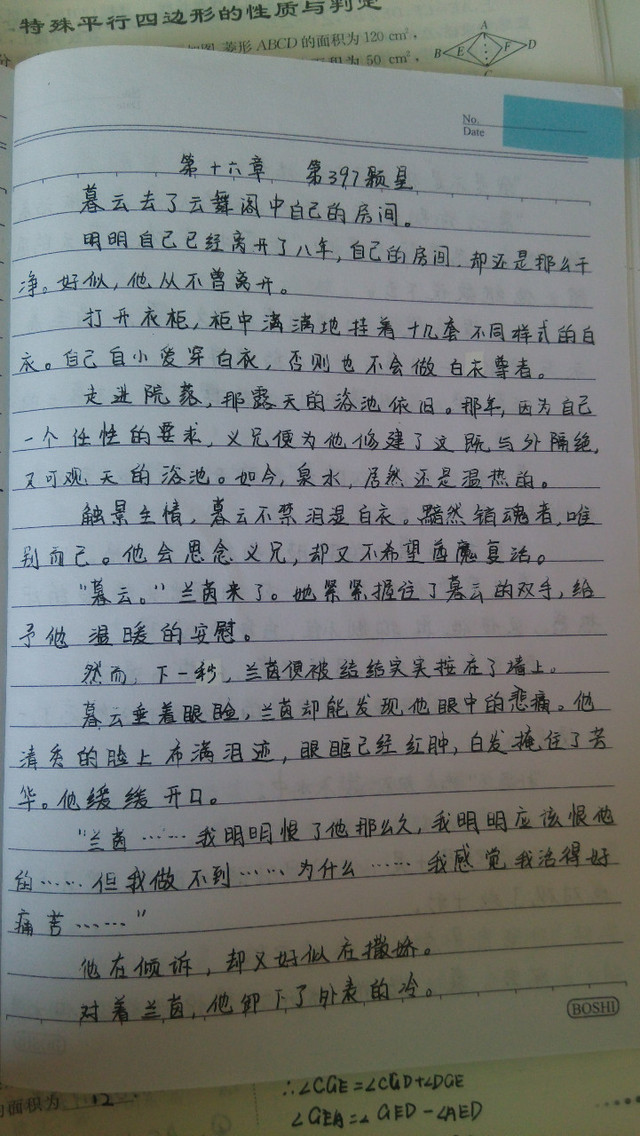 特殊平行四边形的性质与判定
菱形ABCD的面积为120 cm²,
面积为 50 cm²,
A
B E F D
C
No.
Date
第十六章 第397颗星
暮云去了云舞阁中自己的房间。
明明自己已经离开了八年,自己的房间却还是那么干
净。好似,他从不曾离开。
打开衣柜,柜中满满地挂着十几套不同样式的白
衣。自己自小爱穿白衣,否则也不会做白衣尊者。
走进院落,那露天的浴池依旧。那年,因为自己
一个任性的要求,义兄便为他修建了这既与外隔绝,
又可观天的浴池。如今,泉水,居然还是温热的。
触景生情,暮云不禁泪湿白衣。黯然销魂者,唯
别而已。他会思念义兄,却又不希望酋魔复活。
“暮云。”兰茵来了。她紧紧握住了暮云的双手,给
予他温暖的安慰。
然而,下一秒,兰茵便被结结实实按在了墙上。
暮云垂着眼睑,兰茵却能发现他眼中的悲痛。他
清秀的脸上布满泪迹,眼眶已经红肿,白发掩住了芳
华。他缓缓开口。
“兰茵……我明明恨了他那么久,我明明应该恨他
的……但我做不到……为什么……我感觉我活得好
痛苦……”
他在倾诉,却又好似在撒娇。
对着兰茵,他卸下了外表的冷。
BOSHI
的面积为 12
∴∠CGE=∠CGD+∠DGE
∠GEA=∠GED-∠AED